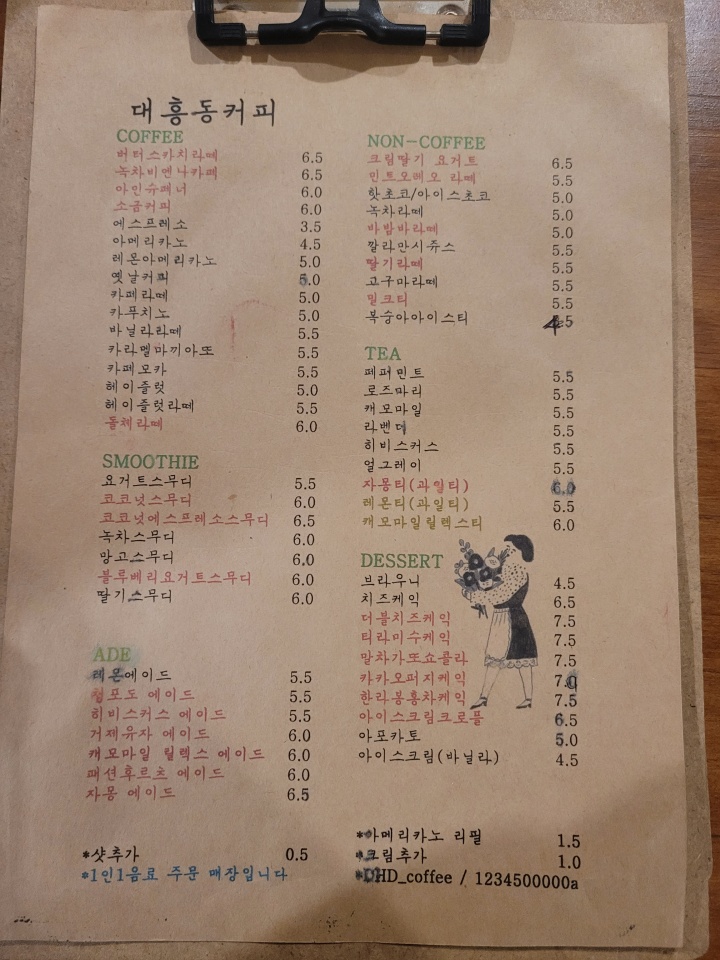 대흥동커피
COFFEE
버터스카치라떼 6.5
녹차비엔나카페 6.5
아인슈페너 6.0
소금커피 6.0
에스프레소 3.5
아메리카노 4.5
레몬아메리카노 5.0
옛날커피 5.0
카페라떼 5.0
카푸치노 5.0
바닐라라떼 5.5
카라멜마끼아또 5.5
카페모카 5.5
헤이즐럿 5.0
헤이즐럿라떼 5.5
돌체라떼 6.0
SMOOTHIE
요거트스무디 5.5
코코넛스무디 6.0
코코넛에스프레소스무디 6.5
녹차스무디 6.0
망고스무디 6.0
블루베리요거트스무디 6.0
딸기스무디 6.0
ADE
레몬에이드 5.5
청포도 에이드 5.5
히비스커스 에이드 5.5
거제유자 에이드 6.0
캐모마일 릴렉스 에이드 6.0
패션후르츠 에이드 6.0
자몽 에이드 6.5
*샷추가 0.5
*1인1음료 주문 매장입니다
NON-COFFEE
크림딸기 요거트 6.5
민트오레오 라떼 5.5
핫초코/아이스초코 5.0
녹차라떼 5.0
바밤바라떼 5.0
깔라만시쥬스 5.5
딸기라떼 5.5
고구마라떼 5.5
밀크티 5.5
복숭아아이스티 4.5
TEA
페퍼민트 5.5
로즈마리 5.5
캐모마일 5.5
라벤더 5.5
히비스커스 5.5
얼그레이 5.5
자몽티(과일티) 6.0
레몬티(과일티) 5.5
캐모마일릴렉스티 6.0
DESSERT
브라우니 4.5
치즈케익 6.5
더블치즈케익 7.5
티라미수케익 7.5
말차가또쇼콜라 7.5
카카오퍼지케익
한라봉홍차케익 7.5
아이스크림크로플 6.5
아포카토 5.0
아이스크림(바닐라) 4.5
*아메리카노 리필 1.5
*크림추가 1.0
*DHD_coffee / 1234500000a